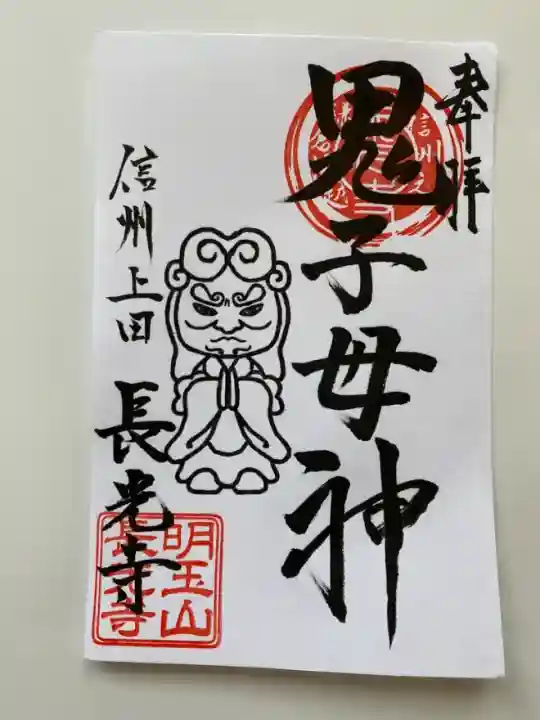 奉拝
鬼子母神
信州上田
長光寺
明玉山
長光寺